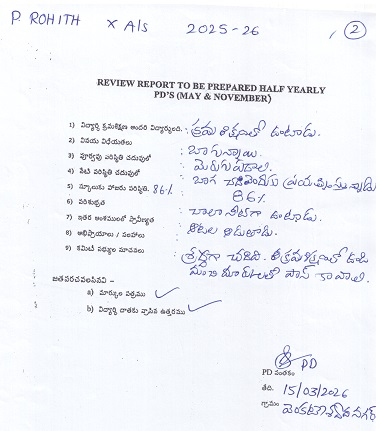 P. ROHITH X A/s 2025-26 2
REVIEW REPORT TO BE PREPARED HALF YEARLY
PD'S (MAY & NOVEMBER)
1) విద్యార్థి క్రమశిక్షణ అందరి విద్యార్థులది. : క్రమ శిక్షణలో ఉంటాడు.
2) వినయ విధేయతలు : బాగున్నాయి.
3) పూర్వపు పరిస్థితి చదువులో : మెరుగుపడాలి.
4) నేటి పరిస్థితి చదువులో : బాగ చదివేందుకు ప్రయత్నిస్తున్నాడు
5) స్కూలుకు హాజరు పరిస్థితి. 86% : 86%
6) పరిశుభ్రత : చాలా నీట్‌గా ఉంటాడు.
7) ఇతర అంశములలో ప్రావీణ్యత : ఆటలు ఆడుతాడు.
8) అభిప్రాయాలు / సలహాలు :
9) కమిటీ సభ్యుల సూచనలు : శ్రద్ధగా చదివి. క్రమశిక్షణలో ఉండి
మంచి మార్కులతో పాస్ కావాలి.
జతపరచవలసినవి -
a) మార్కుల పత్రము ✓
b) విద్యార్థి దాతకు వ్రాసిన ఉత్తరము ✓
PD
PD సంతకం
తేది. 15/03/2026
గ్రామం వెంకటేశ్వర నగర్